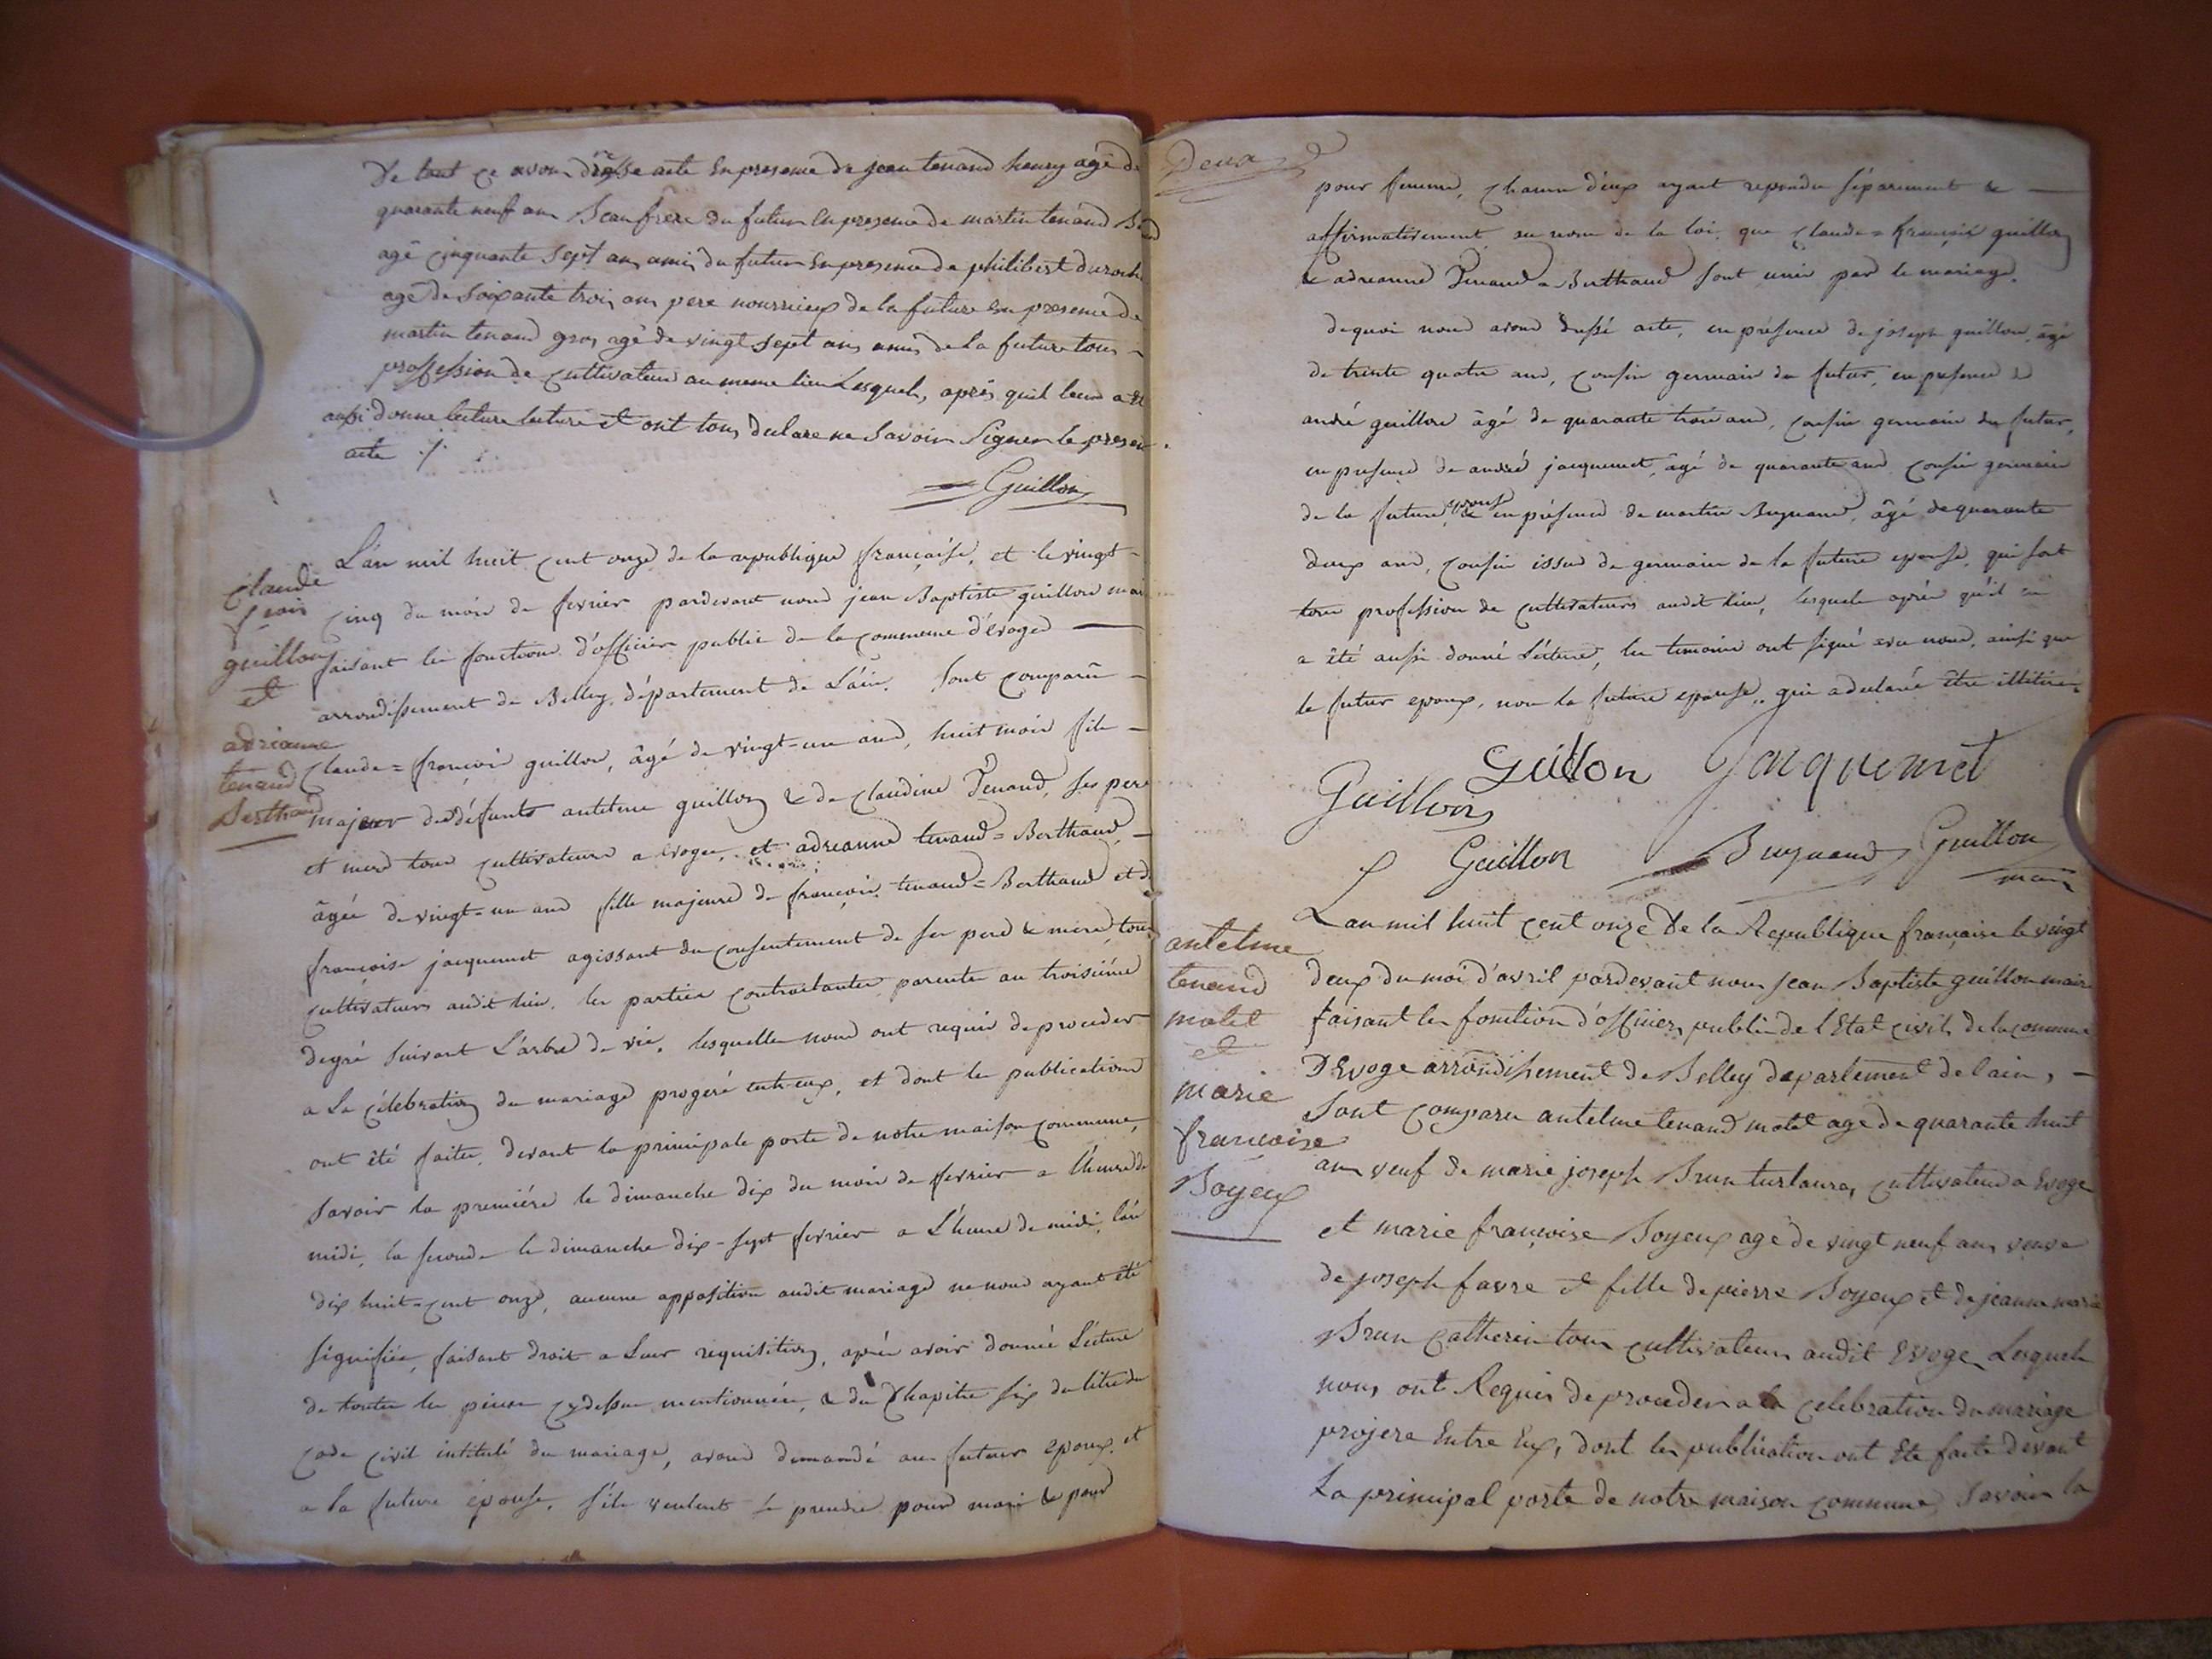 De tout ce avons dressé acte En presence de jean tenand henry agé de
quarante neuf ans Beaufrere du futur En presence de martin tenand
agé cinquante sept ans amis du futur En presence de philibert duroch
agé de soixante trois ans pere nourricieux de la future En presence de
martin tenand gros agé de vingt sept ans amis de la future tous
profession de cultivateur au meme lieu Lesquels, après quil leur a Eté
aussi donne lecture lecture et ont tous declare ne savoir signer le present
acte ./.
Guillon
Claude
frois
guillon
et
adrianne
tenand
Berthaud
L'an mil huit cent onze de la republique française, et le vingt-
cinq du mois de fevrier pardevant nous jean Baptiste guillon maire
faisant les fonctions d'officier public de la commune d'évoges
arrondissement de Belley, département de L'ain. Sont comparû
Claude=françois guillon, âgé de vingt-un ans, huit mois fils
majeur des défunts antelme guillon & de Claudine Tenand, ses pere
et mere tous cultivateurs a evoges, et adreanne tenand=Berthaud,
âgée de vingt=un ans fille majeure de françois tenand=Berthaud et de
françoise jacquemet agissant du consentement de ses pere & mere, tous
cultivateurs audit lieu. les parties contractantes parente au troisiéme
degré suivant L'arbre de vie. lesquelles nous ont requis de proceder
a la célebration du mariage progeré entr'eux, et dont les publications
ont été faites devant la principale porte de notre maison commune,
savoir la premiére le dimanche dix du mois de fevrier a L'heure de
midi, la seconde le dimanche dix-sept fevrier a L'heure de midi, l'an
dix huit=cent onze, aucune oppositions audit mariage ne nous ayant été
signifiée, faisant droit a Leur requisitions, après avoir donnée Lécture
de toutes les pieces cy dessus mentionnées, & du Chapitre six du titre du
code civil intitulé du mariage, avons demandé au futur epoux, et
a la future épouse, s'ils veulent se prendre pour mari & pour
Deux
pour femme, chacun d'eux ayant repondu séparément &
affirmativement, au nom de la loi, que Claude=François guillon
& adreanne Tenand=Berthaud sont unis par le mariage.
dequoi nous avons dressé acte, en présence de joseph guillon, âgé
de trente quatre ans, cousin germain du futur, en presence de
andré guillon âgé de quarante trois ans, cousin germain du futur,
en presence de andré jacquemet, âgé de quarante ans cousin germain
de la future epouse & en présence de martin Buynand, âgé de quarante
deux ans, cousin issud de germain de la future epouse, qui sont
tous profession de cultivateurs audit lieu, lesquels après qu'il en
a êté aussi donné Lécture, les temoins ont signé avec nous, ainsi que
le futur epoux, non la future epouse, qui a declarée être illitirée
Guillon Jacquemet
Guillon
Guillon Buynand Guillon
maire
antelme
tenand
motet
et
marie
françoise
Boyeux
L'an mil huit cent onze De la Republique francaise le vingt
deux du moi d'avril pardevant nous jean Baptiste guillon maire
faisant les fonction d'officier public de l'Etat civil de la commune
D'Evoge arrondissement de Belley departement de lain,
Sont comparu antelme tenand motet age de quarante huit
ans veuf de marie joseph Brun turlaura, cultivateur a Evoge
et marie françoise Boyeux agé de vingt neuf ans veuve
de joseph favre et fille de pierre Boyeux et de jeanne marie
Brun Catherin tous cultivateurs audit Evoge, Lesquels
nous ont Requis de proceder a la celebration du mariage
projere Entre Eux, dont les publication ont Eté faite devant
La principal porte de notre maison commune, Savoir la